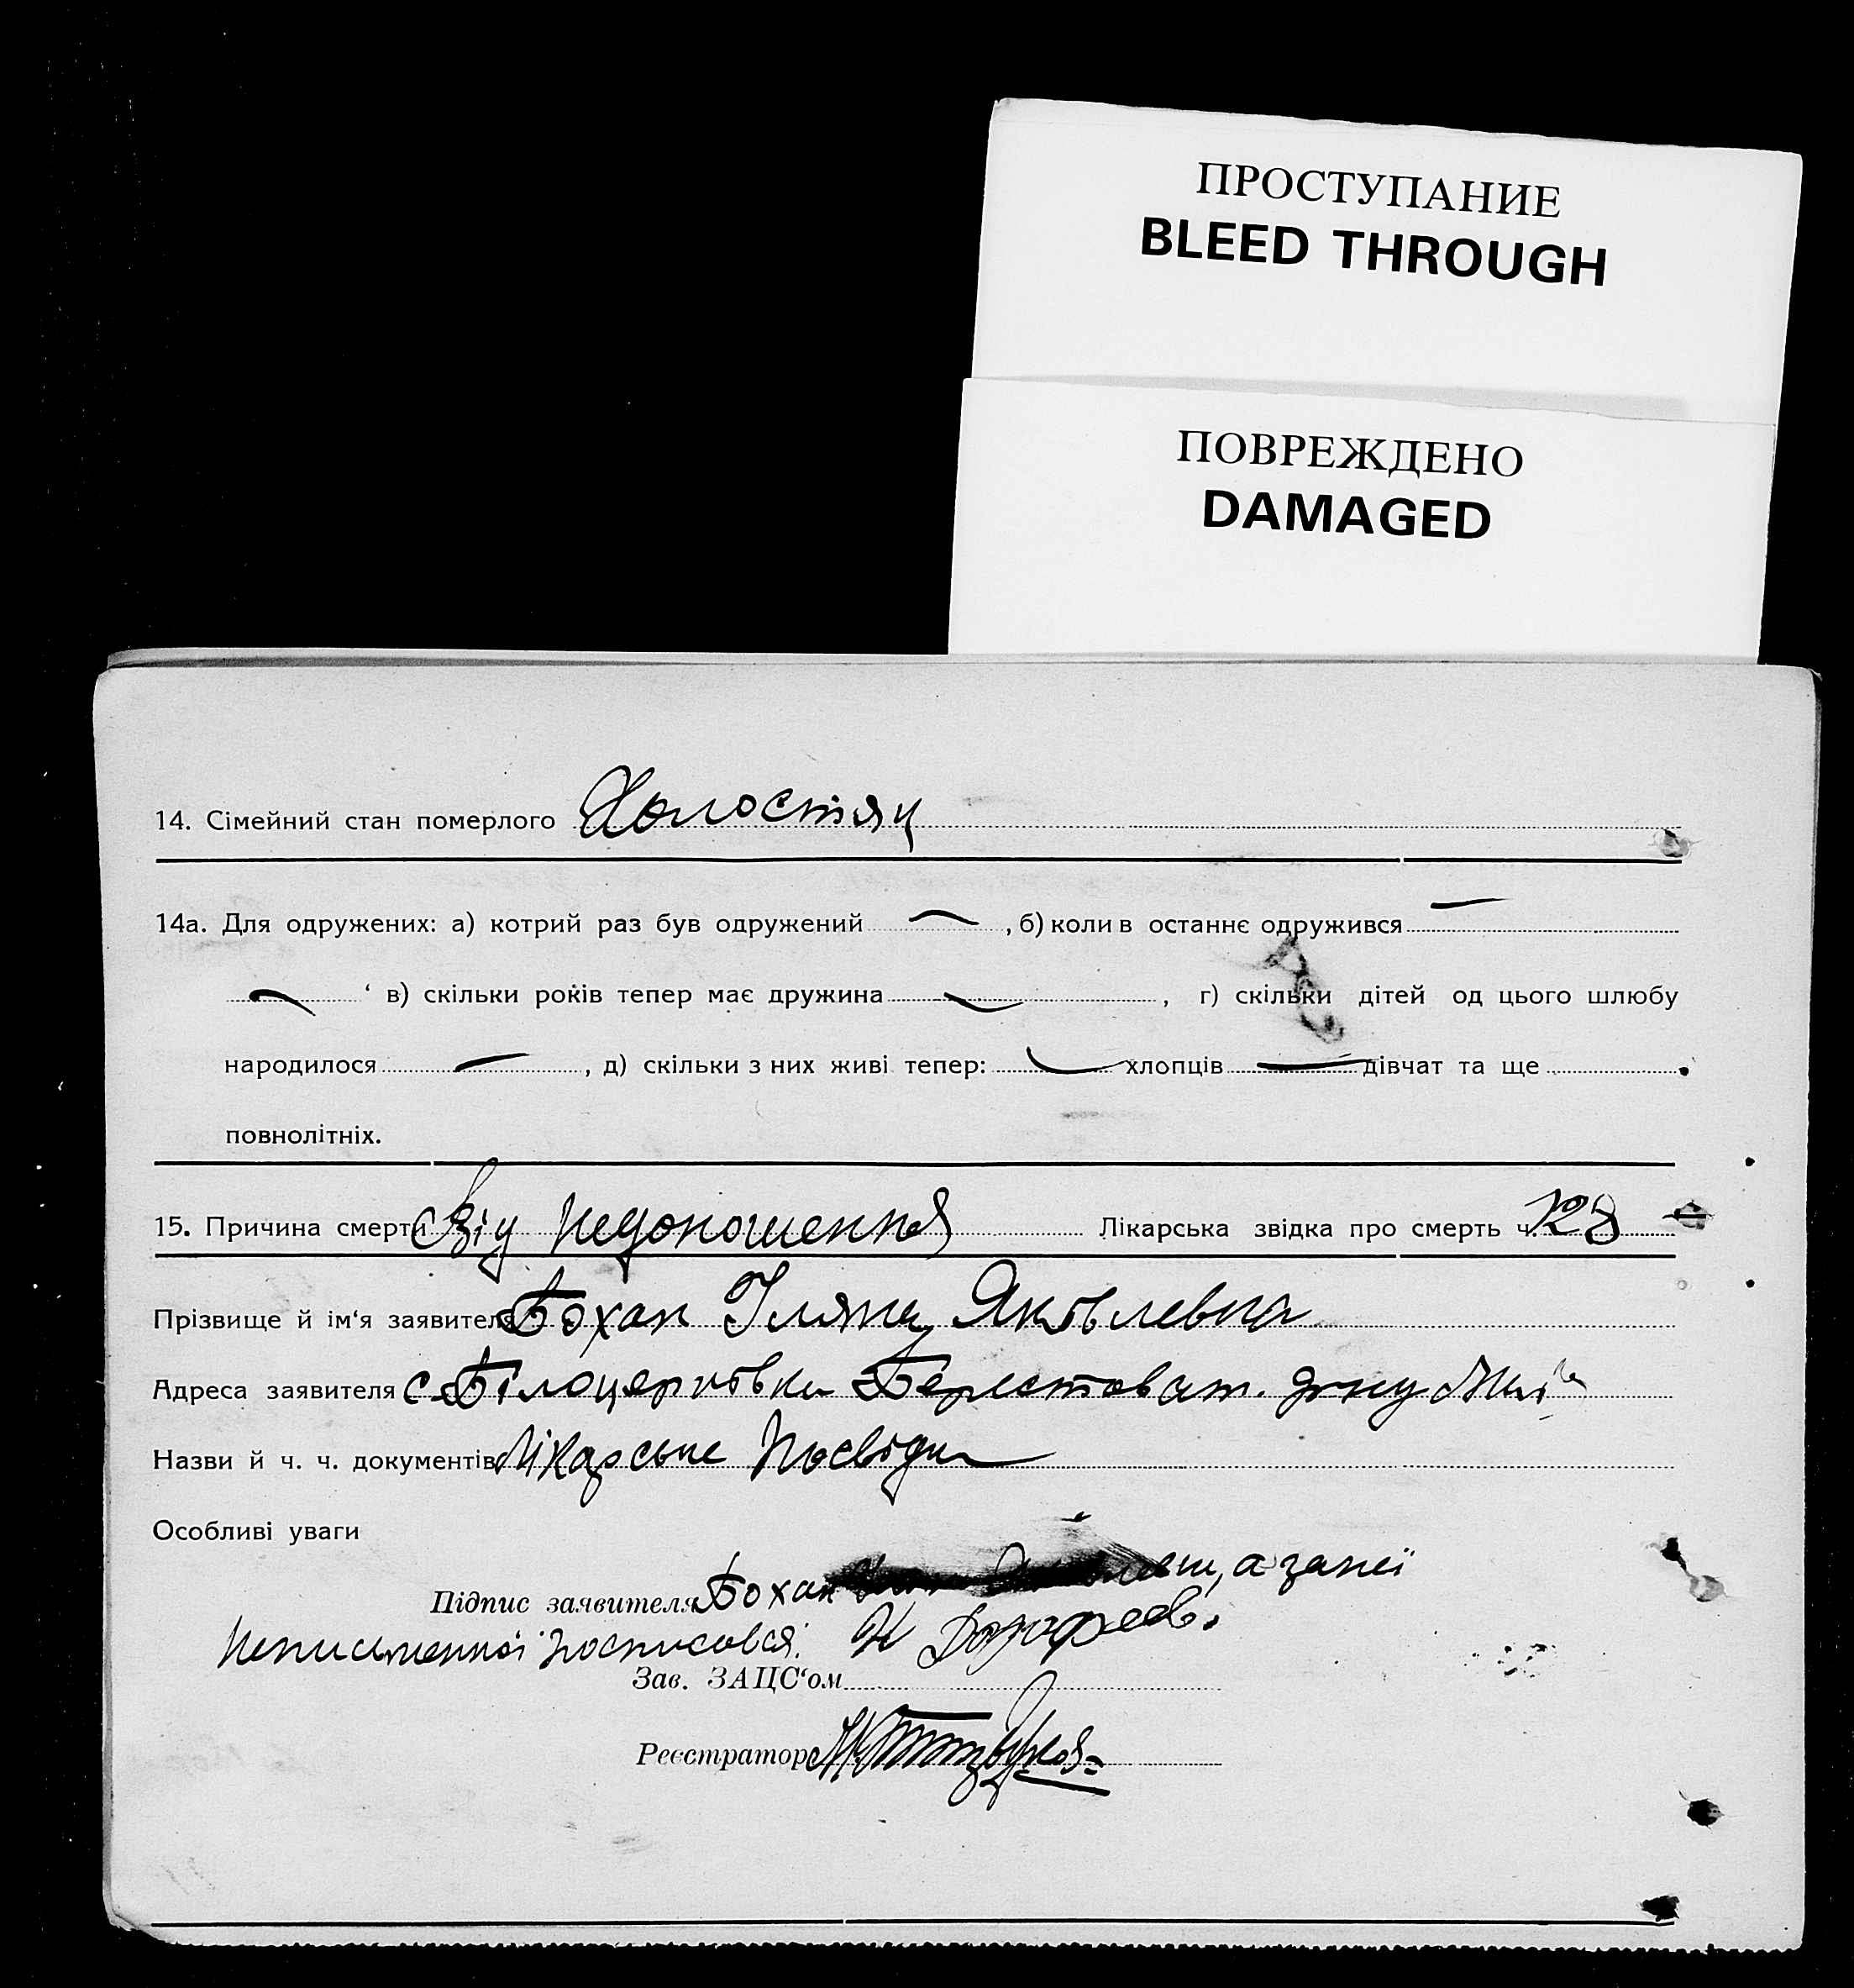 ПРОСТУПАНИЕ
BLEED THROUGH
ПОВРЕЖДЕНО
DAMAGED
14. Сімейний стан померлого Холостяк
14а. Для одружених: а) котрий раз був одружений — , б) коли в останнє одружився —
— ‘ в) скільки років тепер має дружина — , г) скільки дітей од цього шлюбу
народилося — , д) скільки з них живі тепер: — хлопців — дівчат та ще
повнолітніх.
15. Причина смерти Від недоношення Лікарська звідка про смерть ч. 128
Прізвище й ім‘я заявителя Бохан Уляна Яковлевна
Адреса заявителя с. Білоцерковка Берестоват.
Назви й ч. ч. документів Лікарське
Особливі уваги
Підпис заявителя Бохан а за неї
неписьменної росписовся:
Зав. ЗАЦС‘ом
Реєстратор